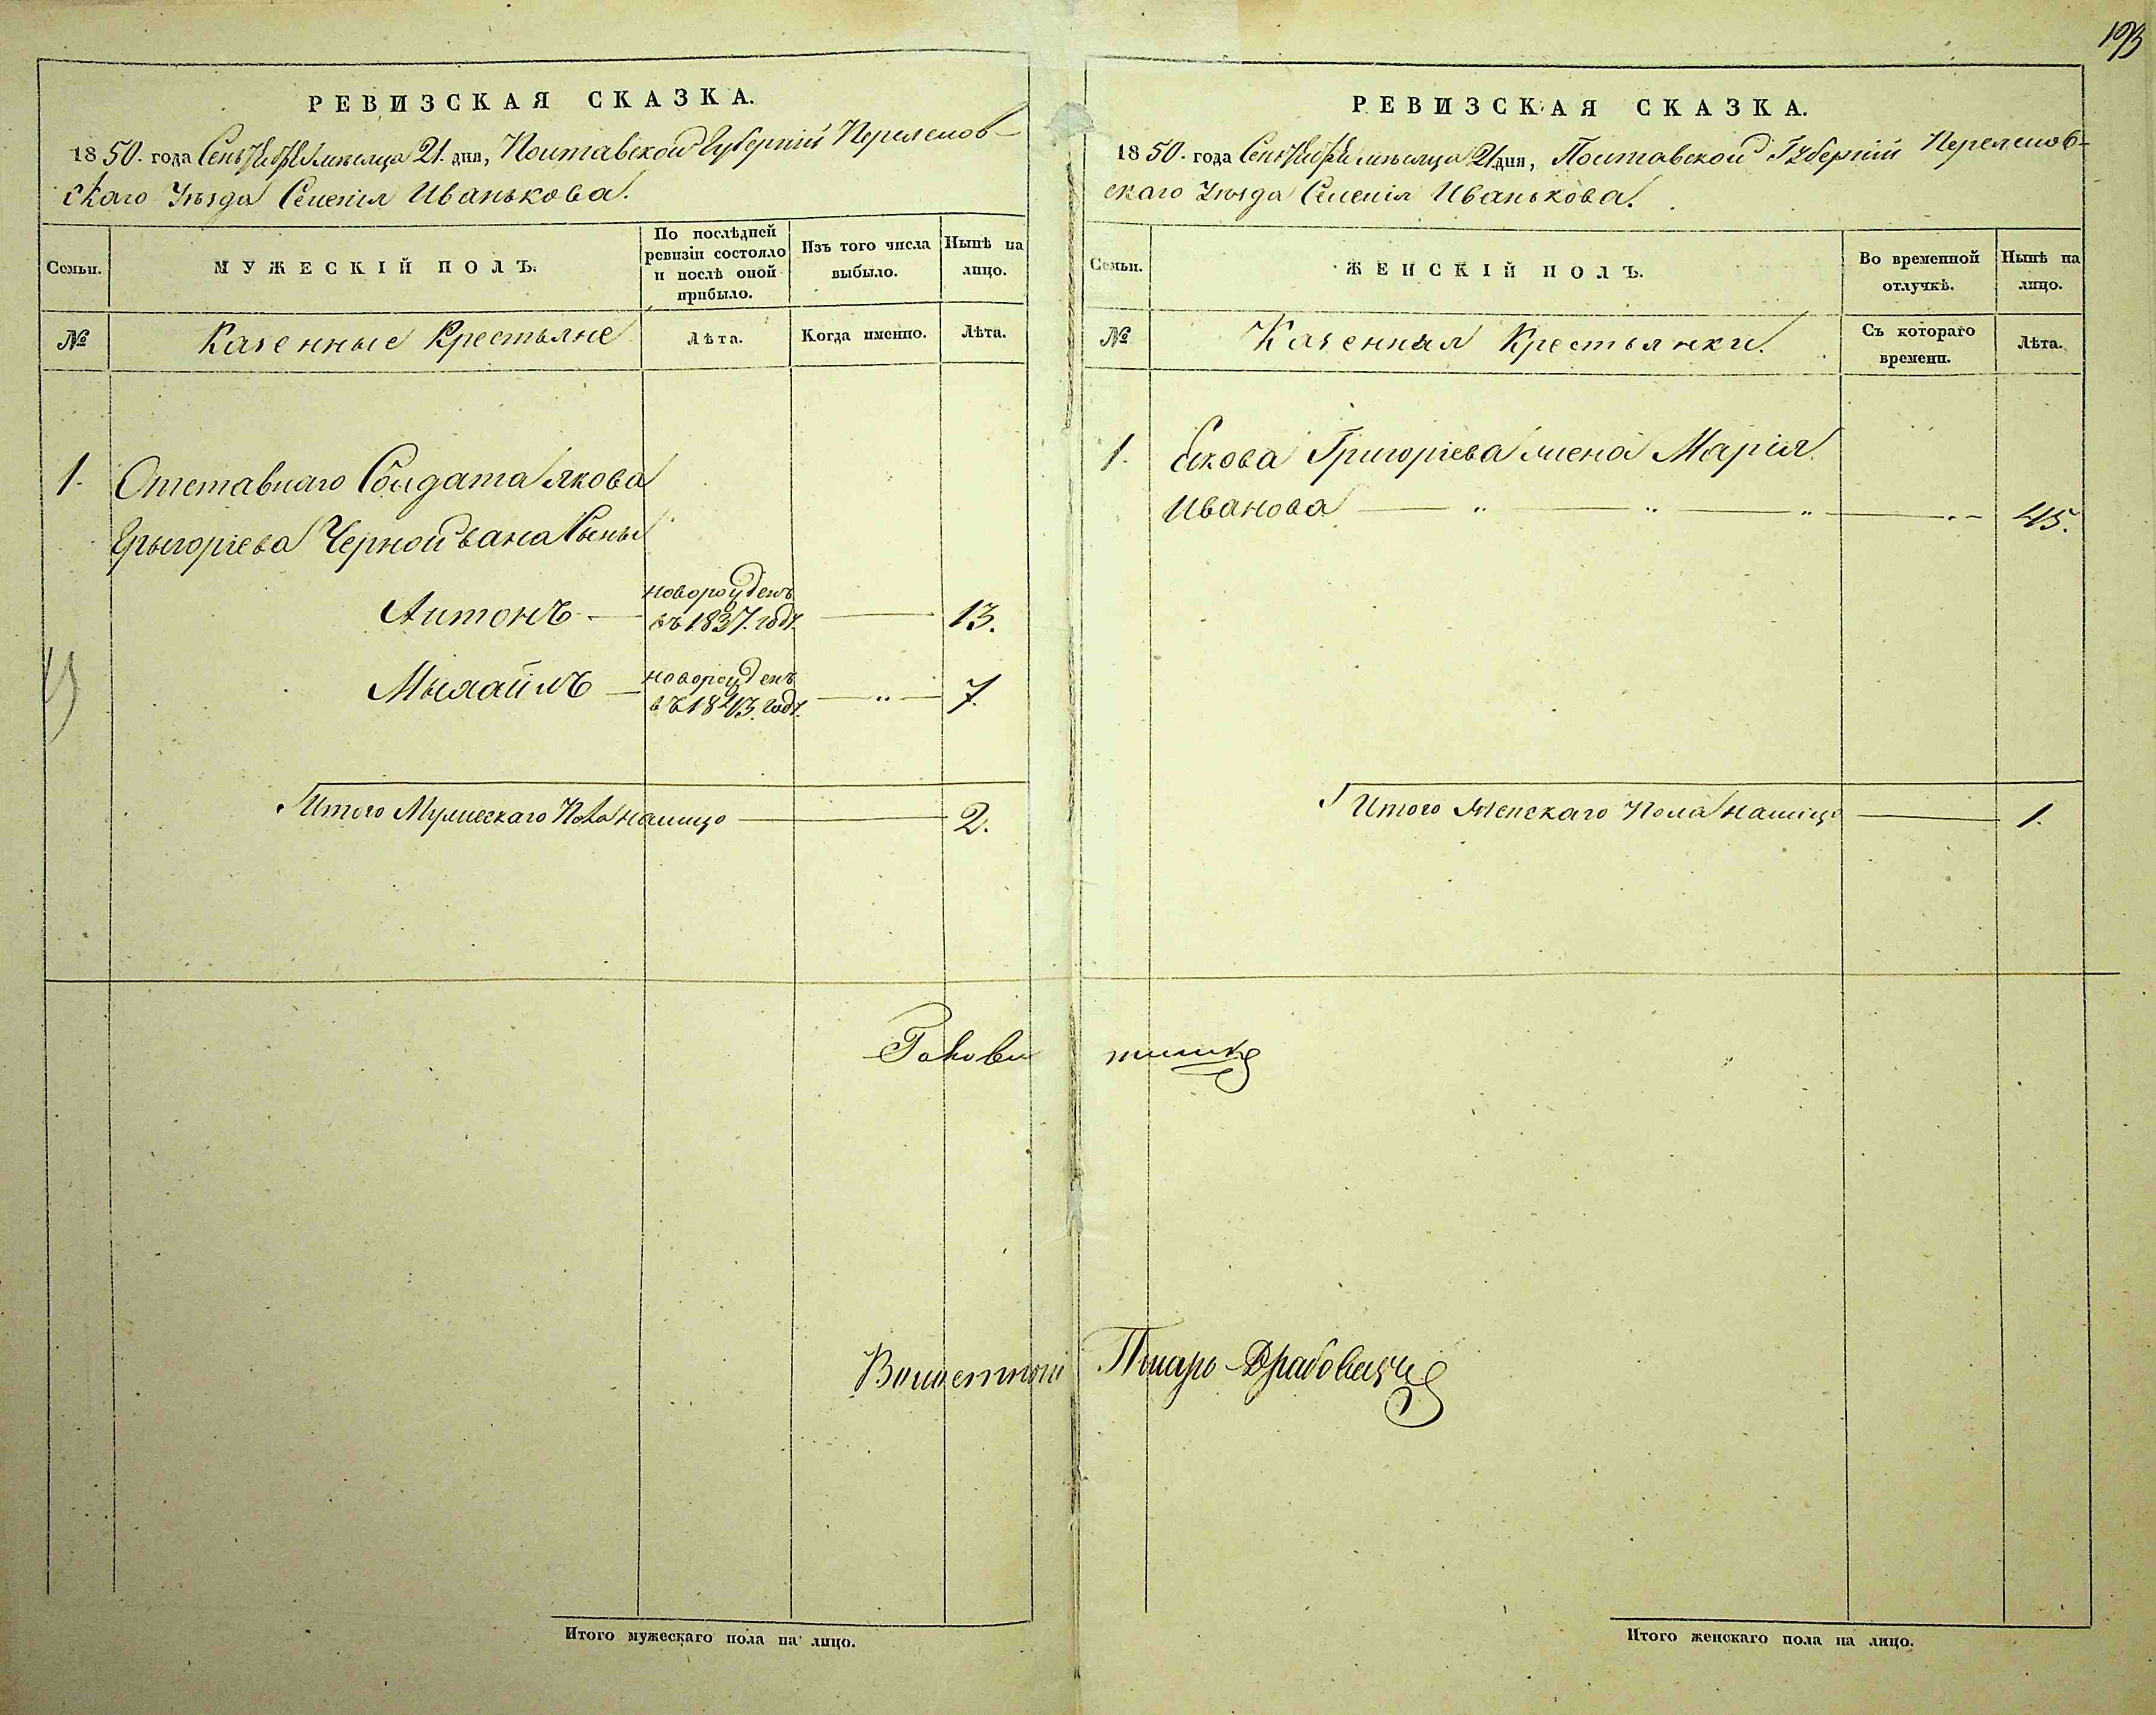 193
РЕВИЗСКАЯ СКАЗКА.
1850. года Сентября месяца 21. дня, Полтавской Губерніи Переяслов-
скаго Уѣзда Селенія Иванькова.
Семьи.
МУЖЕСКІЙ ПОЛЪ.
По послѣдней
ревизіи состояло
и послѣ оной
прибыло.
Изъ того числа
выбыло.
Нынѣ на
лицо.
№
Казенные Крестьяне
Лѣта.
Когда именно.
Лѣта.
1. Отставнаго Солдата Якова
Грыгоріева Чернойвана Сыны
Антонъ — новорожденъ
въ 1837. году. — 13.
Мыхайлъ — новорожденъ
въ 1843. году. — " — 7.
Итого Мужескаго Пола налицо — 2.
Итого мужескаго пола на лицо.
РЕВИЗСКАЯ СКАЗКА.
1850. года Сентября месяца 21 дня, Полтавской Губерніи Переяслов-
скаго Уѣзда Селенія Иванькова.
Семьи.
ЖЕНСКІЙ ПОЛЪ.
Во временной
отлучкѣ.
Нынѣ на
лицо.
№
Казенныя Крестьянки.
Съ котораго
времени.
Лѣта.
1. Якова Григоріева жена Марія
Иванова — " — " — " — " — 45.
Итого Женскаго Пола налицо — 1.
Писарь
Итого женскаго пола на лицо.